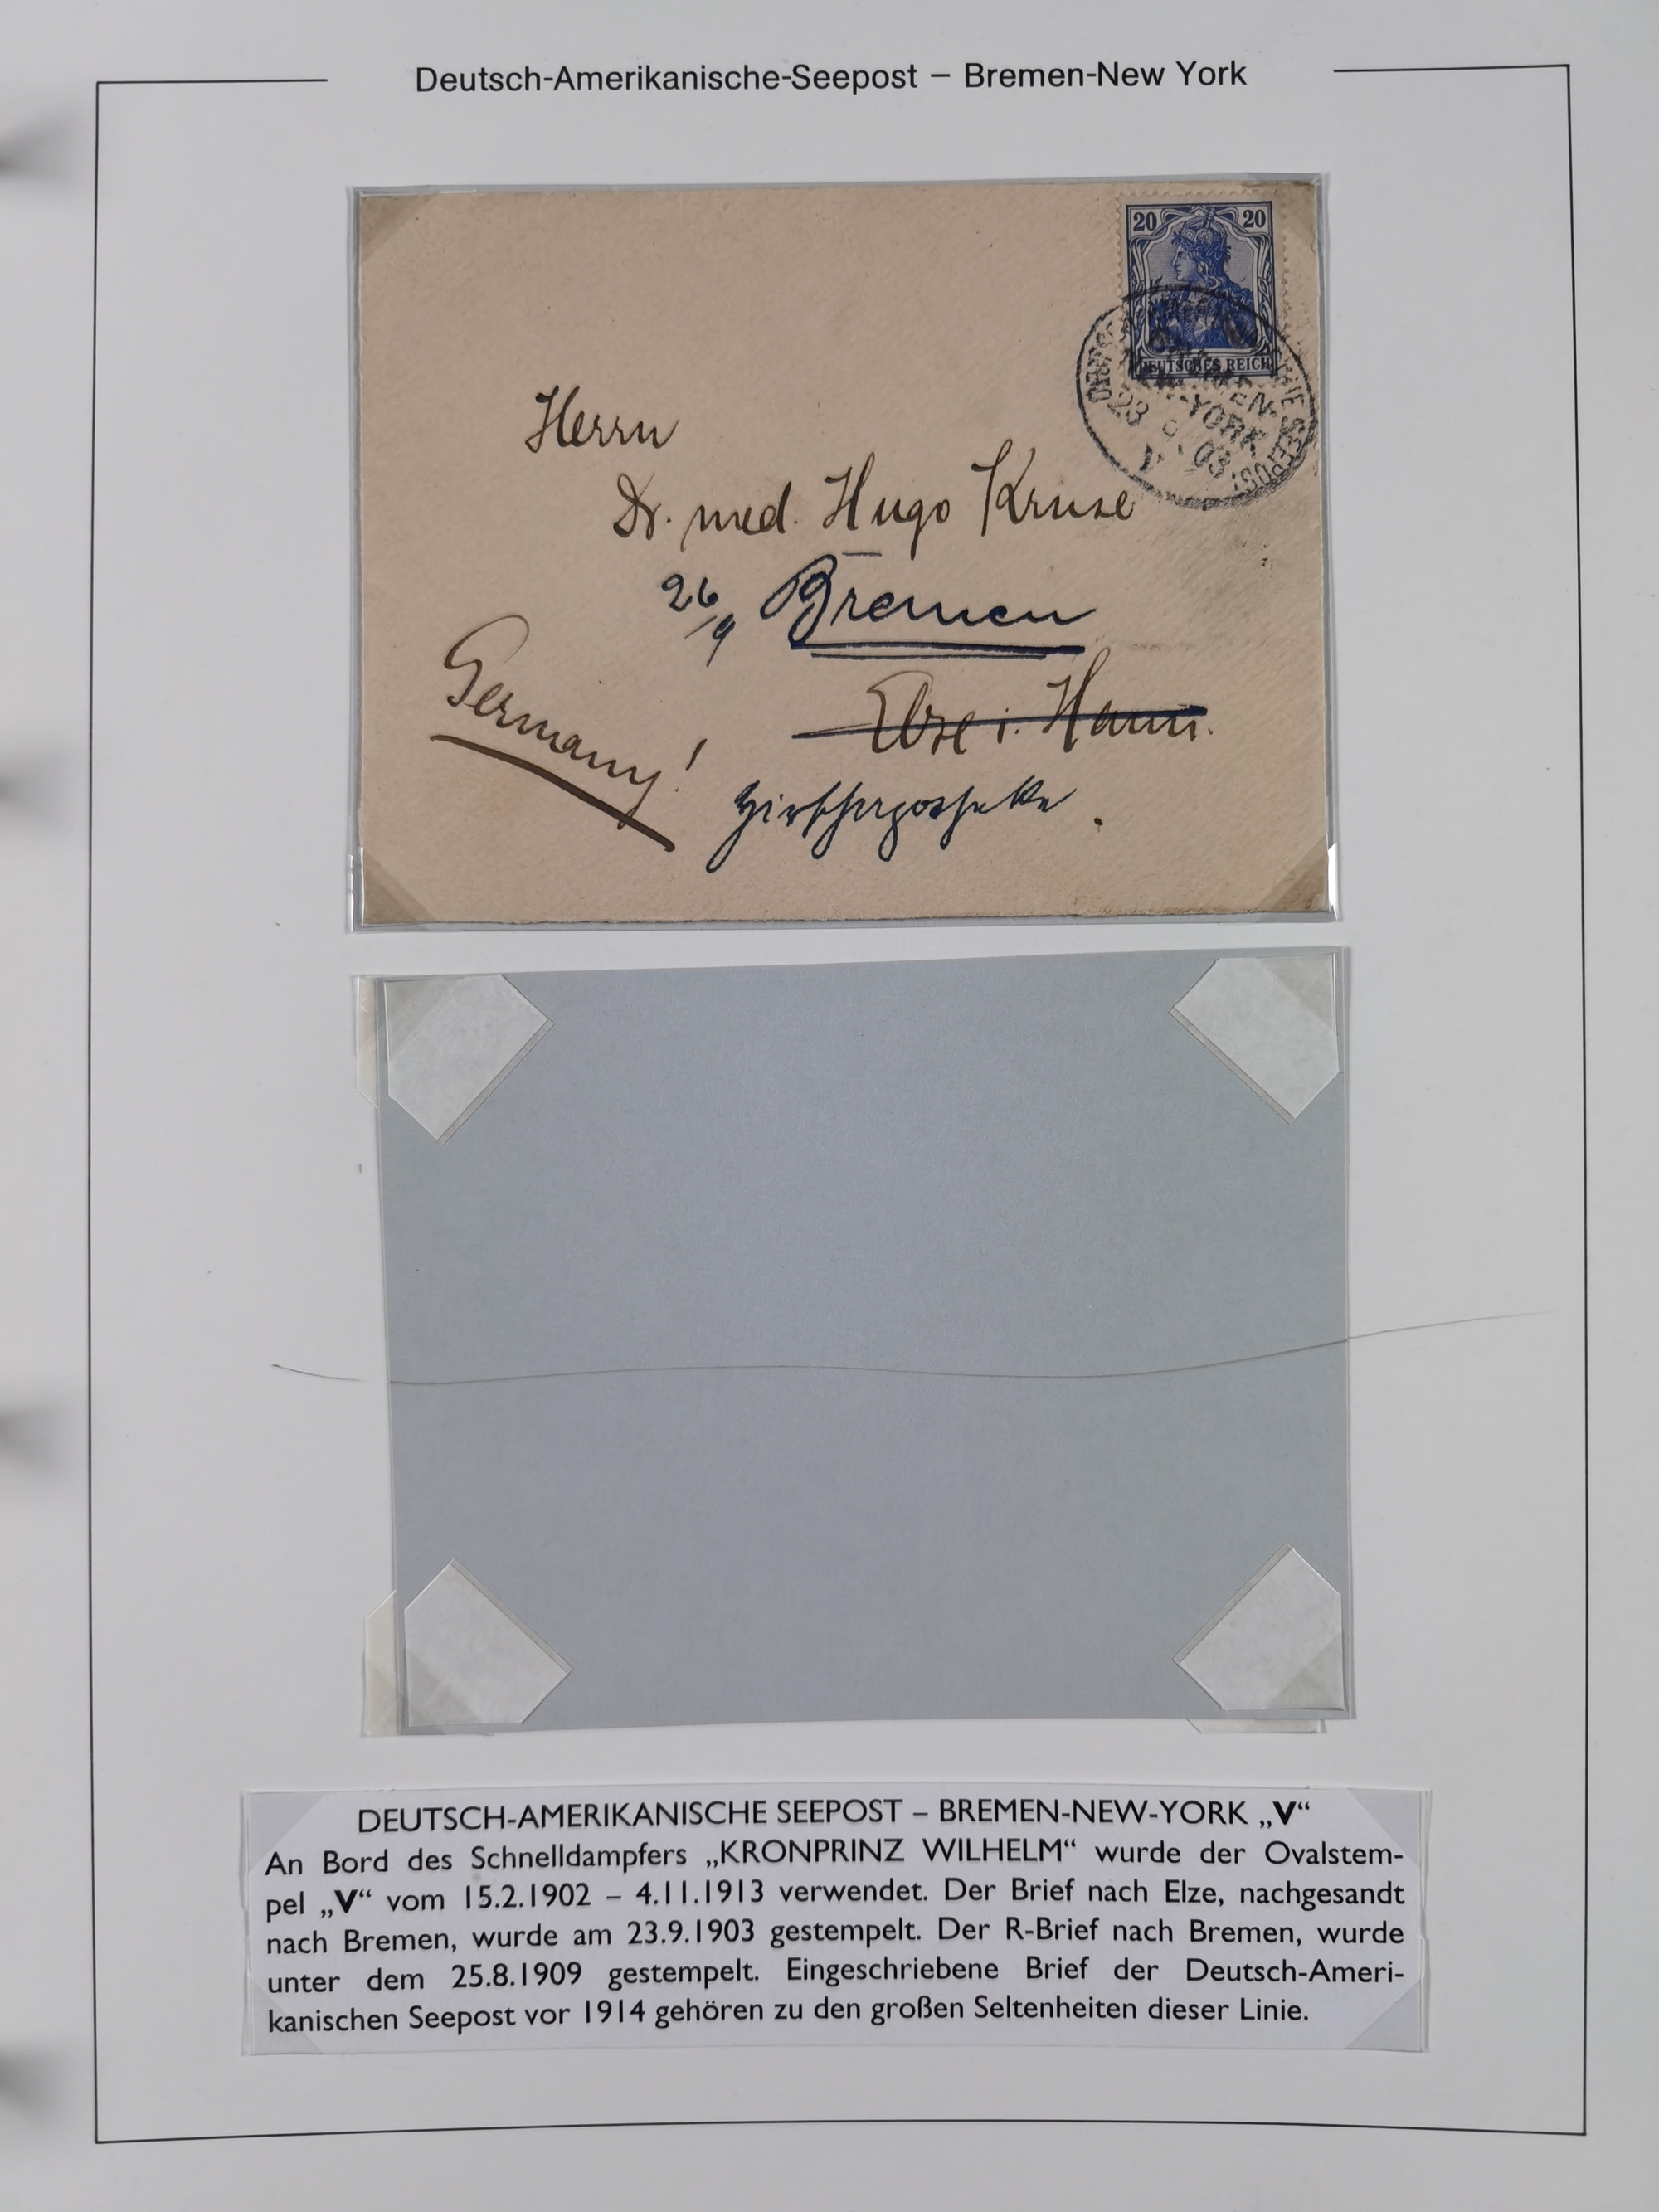 Deutsch-Amerikanische-Seepost – Bremen-New York
20 20
DEUTSCHES REICH
SEEPOST
BREMEN-
-YORK
23 9 03
V
Herrn
Dr. med. Hugo Kruse
26/9 Bremen
Elze i. Hann.
Germany!
Hirschapotheke.
DEUTSCH-AMERIKANISCHE SEEPOST – BREMEN-NEW-YORK „V“
An Bord des Schnelldampfers „KRONPRINZ WILHELM“ wurde der Ovalstem-
pel „V“ vom 15.2.1902 – 4.11.1913 verwendet. Der Brief nach Elze, nachgesandt
nach Bremen, wurde am 23.9.1903 gestempelt. Der R-Brief nach Bremen, wurde
unter dem 25.8.1909 gestempelt. Eingeschriebene Brief der Deutsch-Ameri-
kanischen Seepost vor 1914 gehören zu den großen Seltenheiten dieser Linie.